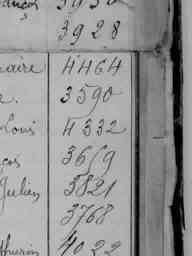 ançois 3930
3928
naire 4464
e. 3590
Louis 4332
çois 3659
Julien 3821
3768
thurin 4022